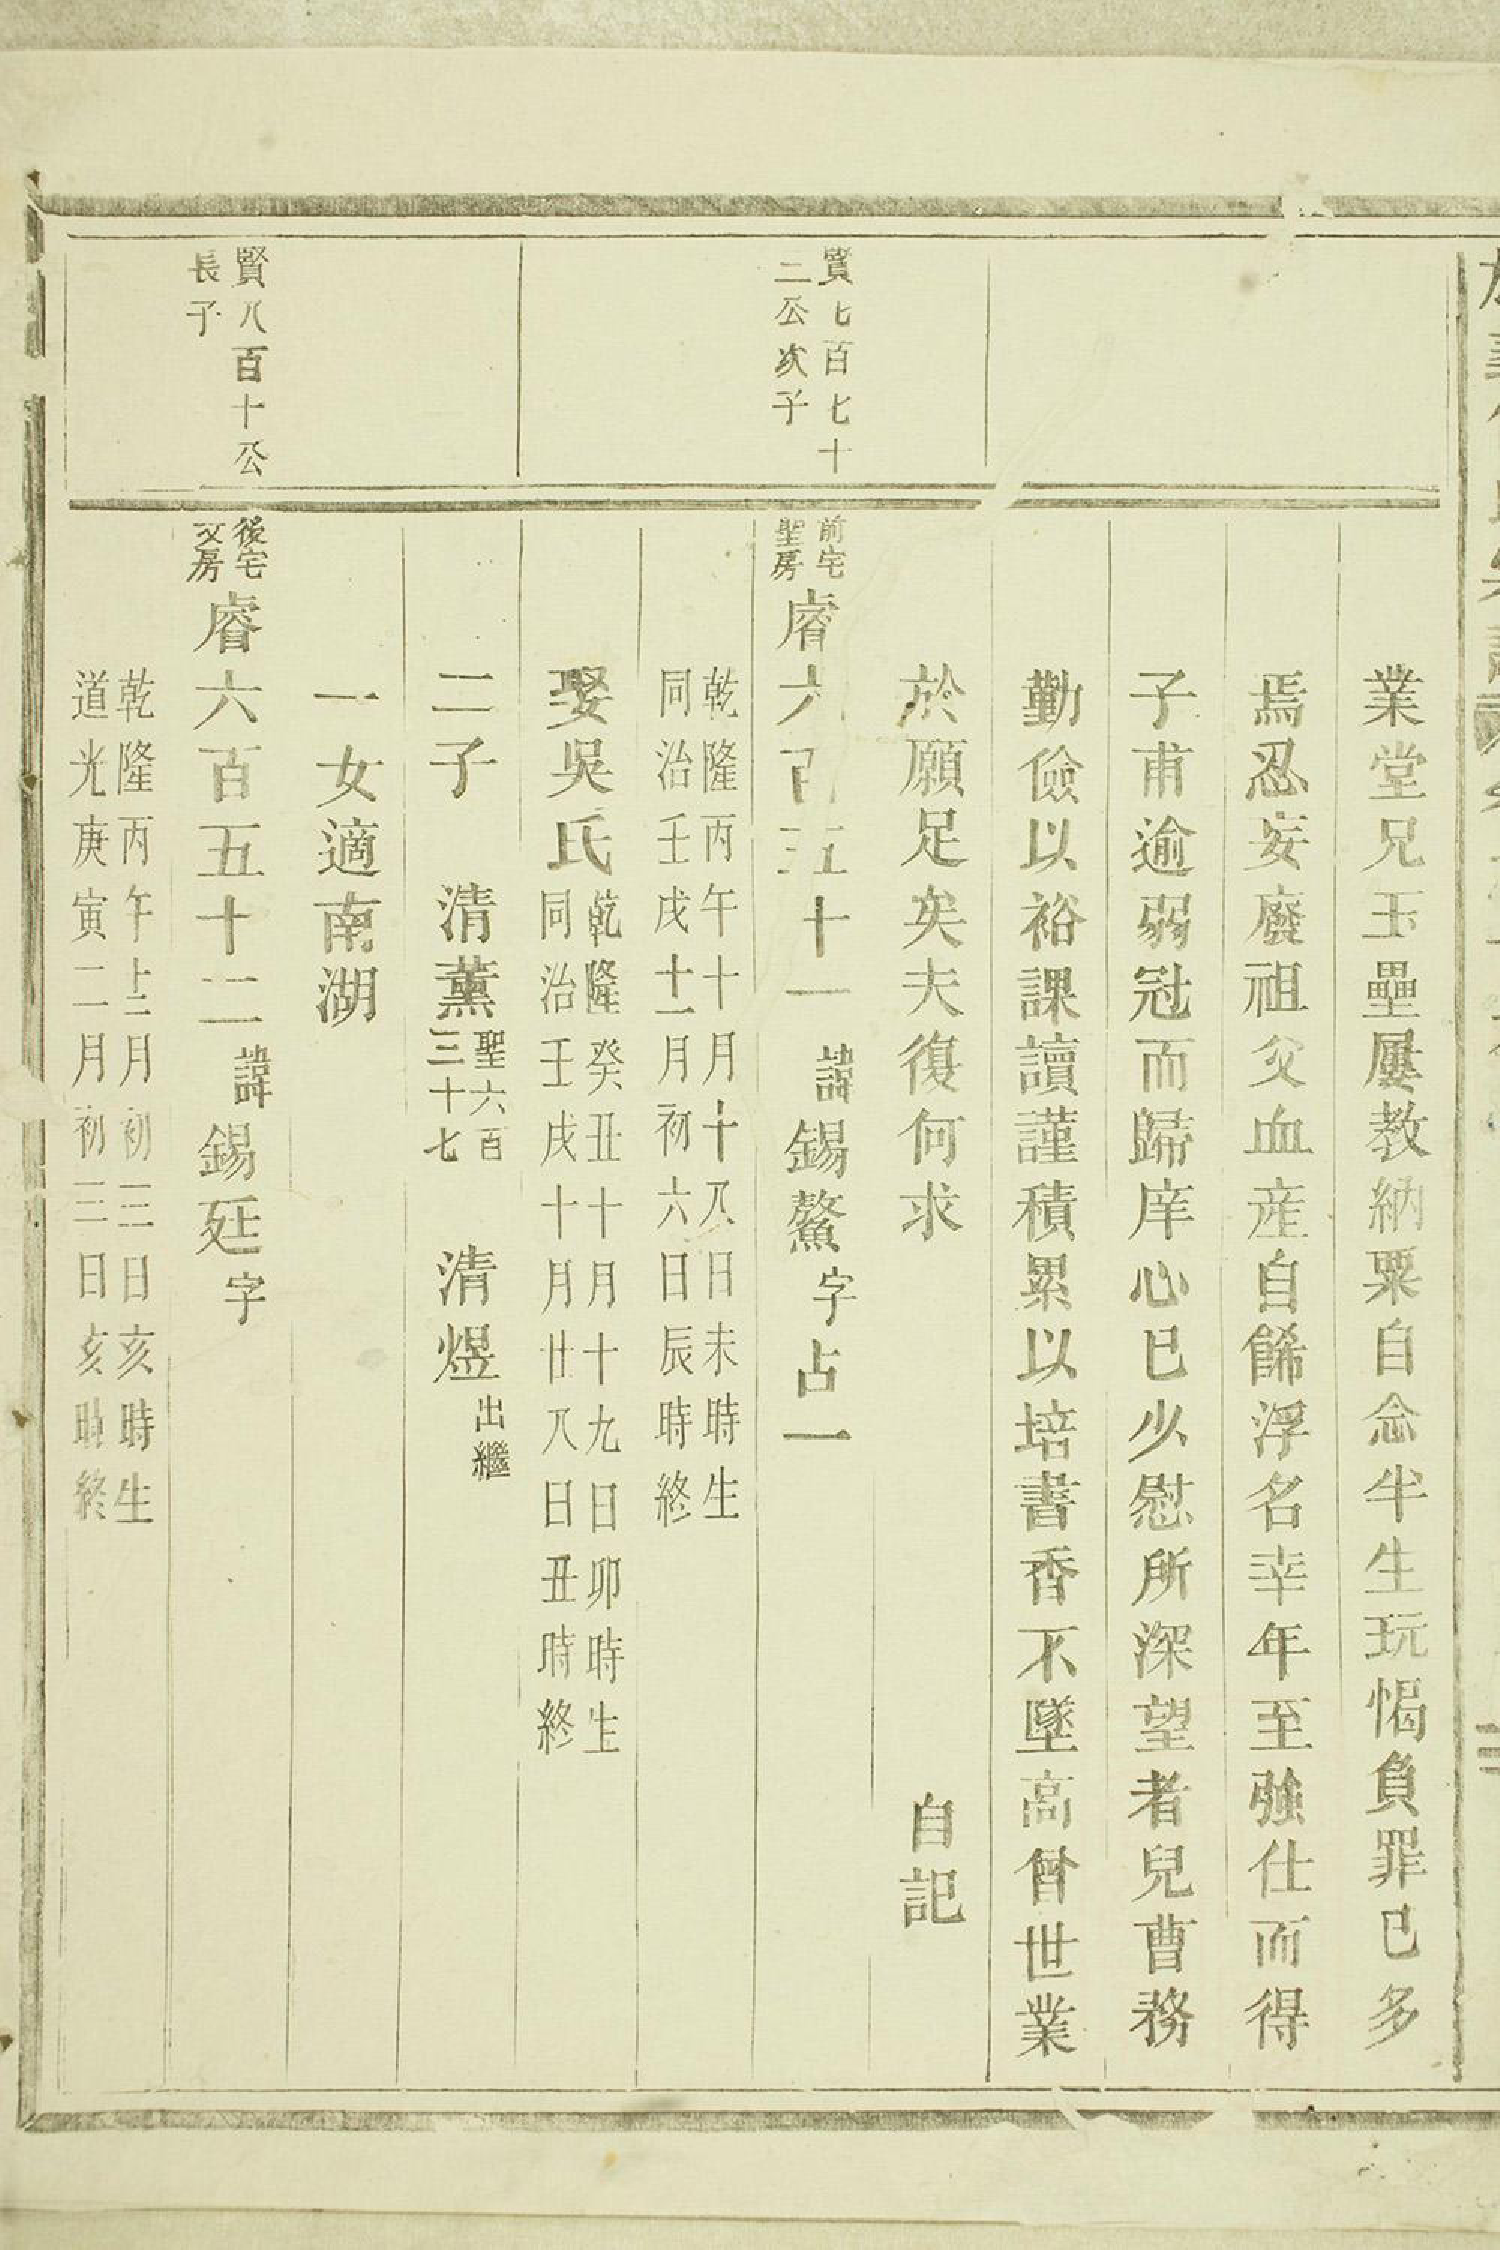 業堂兄玉壘屢教納粟自念半生玩愒負罪已多
焉忍妄廢祖父血産自餙浮名幸年至強仕而得
子甫逾弱冠而歸庠心已少慰所深望者兒曹務
勤儉以裕課讀謹積累以培書香不墜高曾世業
於願足矣夫復何求
自記
賢七百七十
二公次子
前宅
聖房
睿六百五十一諱錫鰲字占一
乾隆丙午十月十八日未時生
同治壬戌十一月初六日辰時終
娶吳氏
乾隆癸丑十月十九日卯時生
同治壬戌十月廿八日丑時終
二子 清薰
聖六百
三十七
清煜
出繼
一女適南湖
賢八百十公
長子
後宅
文房
睿六百五十二諱錫廷字
乾隆丙午十二月初三日亥時生
道光庚寅二月初三日亥時終